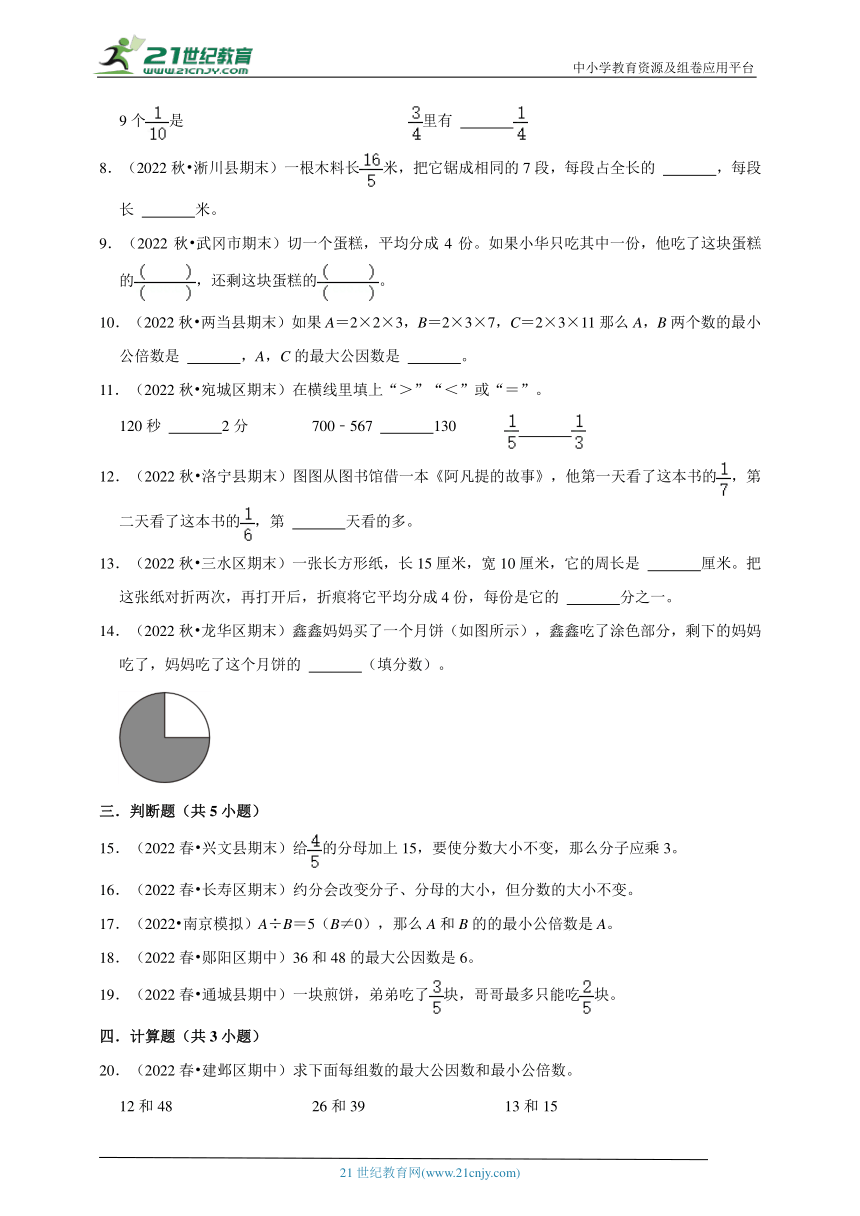 21世纪教育
WWW.21CNJY.COM
中小学教育资源及组卷应用平台
9个1/10是 3/4里有 ______1/4
8．（2022秋•淅川县期末）一根木料长16/5米，把它锯成相同的7段，每段占全长的 ______，每段
长 ______米。
9．（2022秋•武冈市期末）切一个蛋糕，平均分成4份。如果小华只吃其中一份，他吃了这块蛋糕
的( )/( )，还剩这块蛋糕的( )/( )。
10．（2022秋•两当县期末）如果A＝2×2×3，B＝2×3×7，C＝2×3×11那么A，B两个数的最小
公倍数是 ______，A，C的最大公因数是 ______。
11．（2022秋•宛城区期末）在横线里填上“＞”“＜”或“＝”。
120秒 ______2分 700﹣567 ______130 1/5______1/3
12．（2022秋•洛宁县期末）图图从图书馆借一本《阿凡提的故事》，他第一天看了这本书的1/7，第
二天看了这本书的1/6，第 ______天看的多。
13．（2022秋•三水区期末）一张长方形纸，长15厘米，宽10厘米，它的周长是 ______厘米。把
这张纸对折两次，再打开后，折痕将它平均分成4份，每份是它的 ______分之一。
14．（2022秋•龙华区期末）鑫鑫妈妈买了一个月饼（如图所示），鑫鑫吃了涂色部分，剩下的妈妈
吃了，妈妈吃了这个月饼的 ______（填分数）。
三．判断题（共5小题）
15．（2022春•兴文县期末）给4/5的分母加上15，要使分数大小不变，那么分子应乘3。
16．（2022春•长寿区期末）约分会改变分子、分母的大小，但分数的大小不变。
17．（2022•南京模拟）A÷B＝5（B≠0），那么A和B的的最小公倍数是A。
18．（2022春•郧阳区期中）36和48的最大公因数是6。
19．（2022春•通城县期中）一块煎饼，弟弟吃了3/5块，哥哥最多只能吃2/5块。
四．计算题（共3小题）
20．（2022春•建邺区期中）求下面每组数的最大公因数和最小公倍数。
12和48 26和39 13和15
21世纪教育网(www.21cnjy.com)